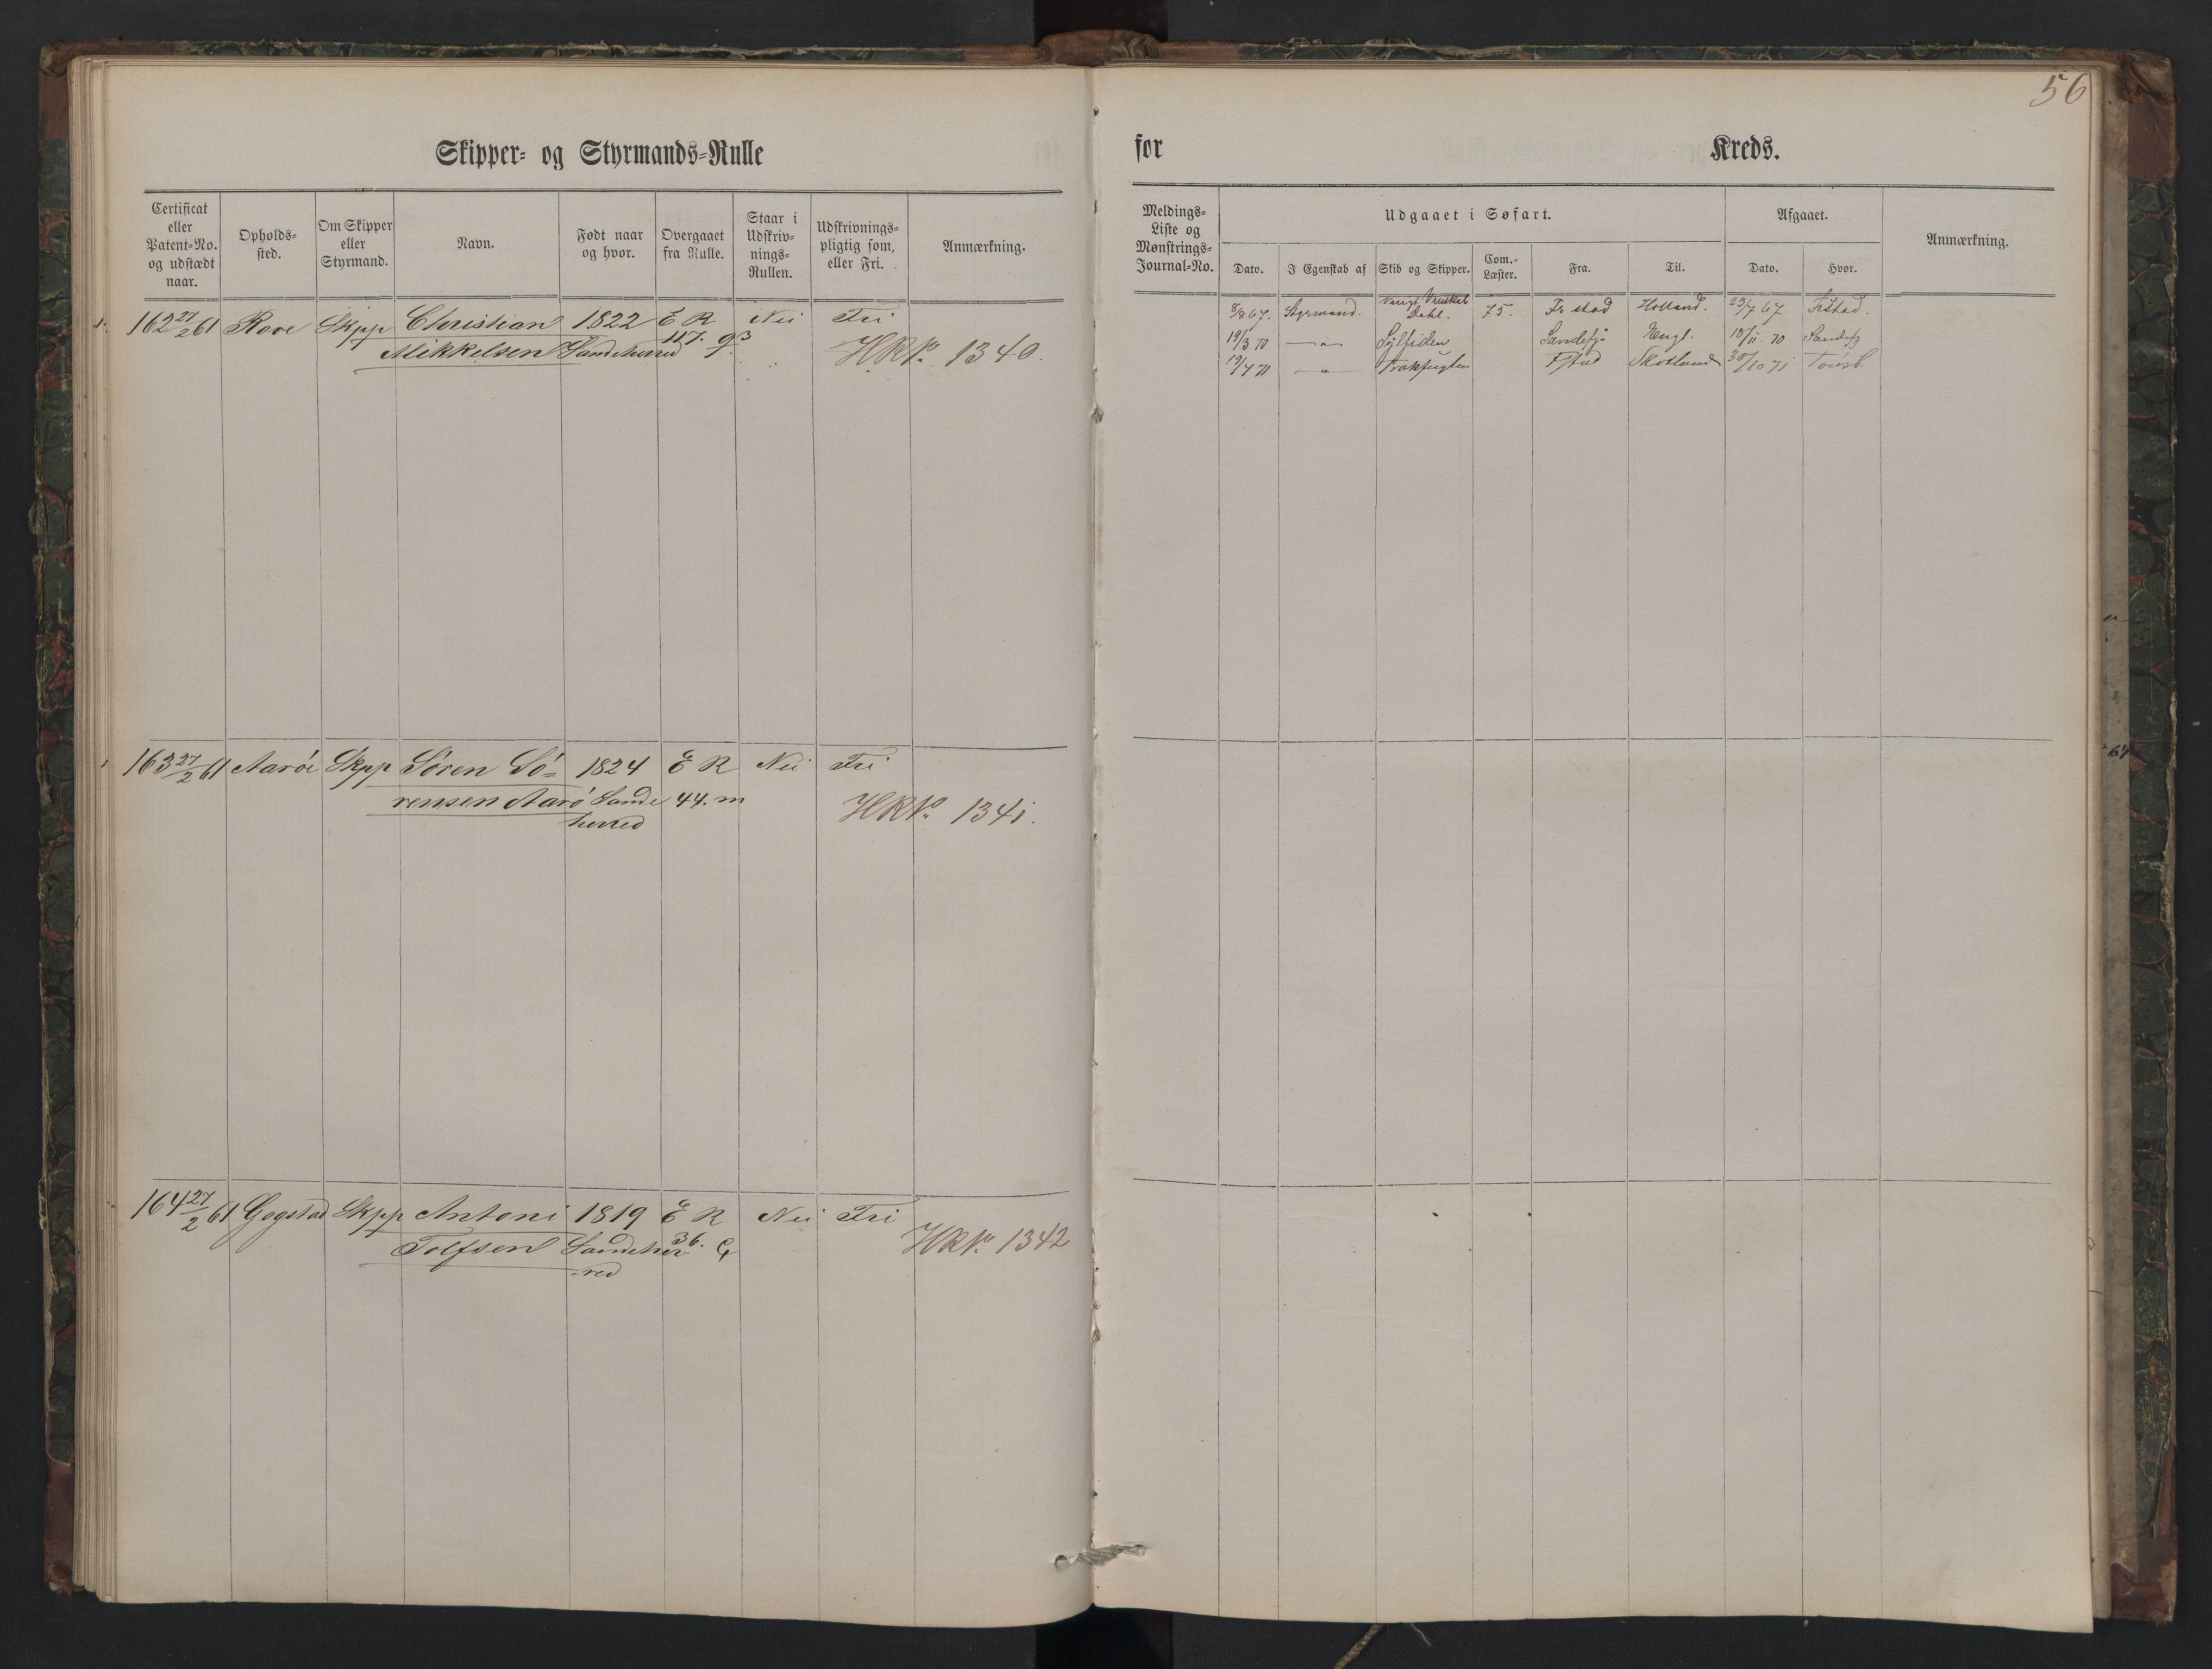 56
Skipper- og Styrmands-Rulle
for Kreds.
Certificat eller Patent-No. og udstædt naar.
Opholds-sted.
Om Skipper eller Styrmand.
Navn.
Født naar og hvor.
Overgaaet fra Rulle.
Staar i Udskriv-nings-Rullen.
Udskrivnings-pligtig som, eller Fri.
Anmærkning.
Meldings-Liste og Mønstrings-Journal-No.
Udgaaet i Søfart.
Afgaaet.
Anmærkning.
Dato. I Egenskab af Skib og Skipper. Com.-Læster. Fra. Til. Dato. Hvor.
162 27/2 61 Rove Skpp Christian 1822 E R Nei Fri
Mikkelsen Sandeherred 117.
HRN. 1340.
67. Styrmand. Dahl. 75. Fr stad Holland. 23/7 67 Frstad.
19/3 70 —"— Sylfiden Sandefj Engl. 18/11. 70 Sandefj
19/4 71 —"— Trækfuglen Fstad Skotland 30/10 71 Tønsb
163 27/2 61 Aarö Skpp Sören Sö= 1824 E R Nei Fri
rensen Aarö Sande 44. m
herred
HRN. 1341.
164 27/2 61 Gogstad Skpp Antoni 1819 E R Nei Fri
Tolfsen Sandeher 36.
=red
HRN. 1342